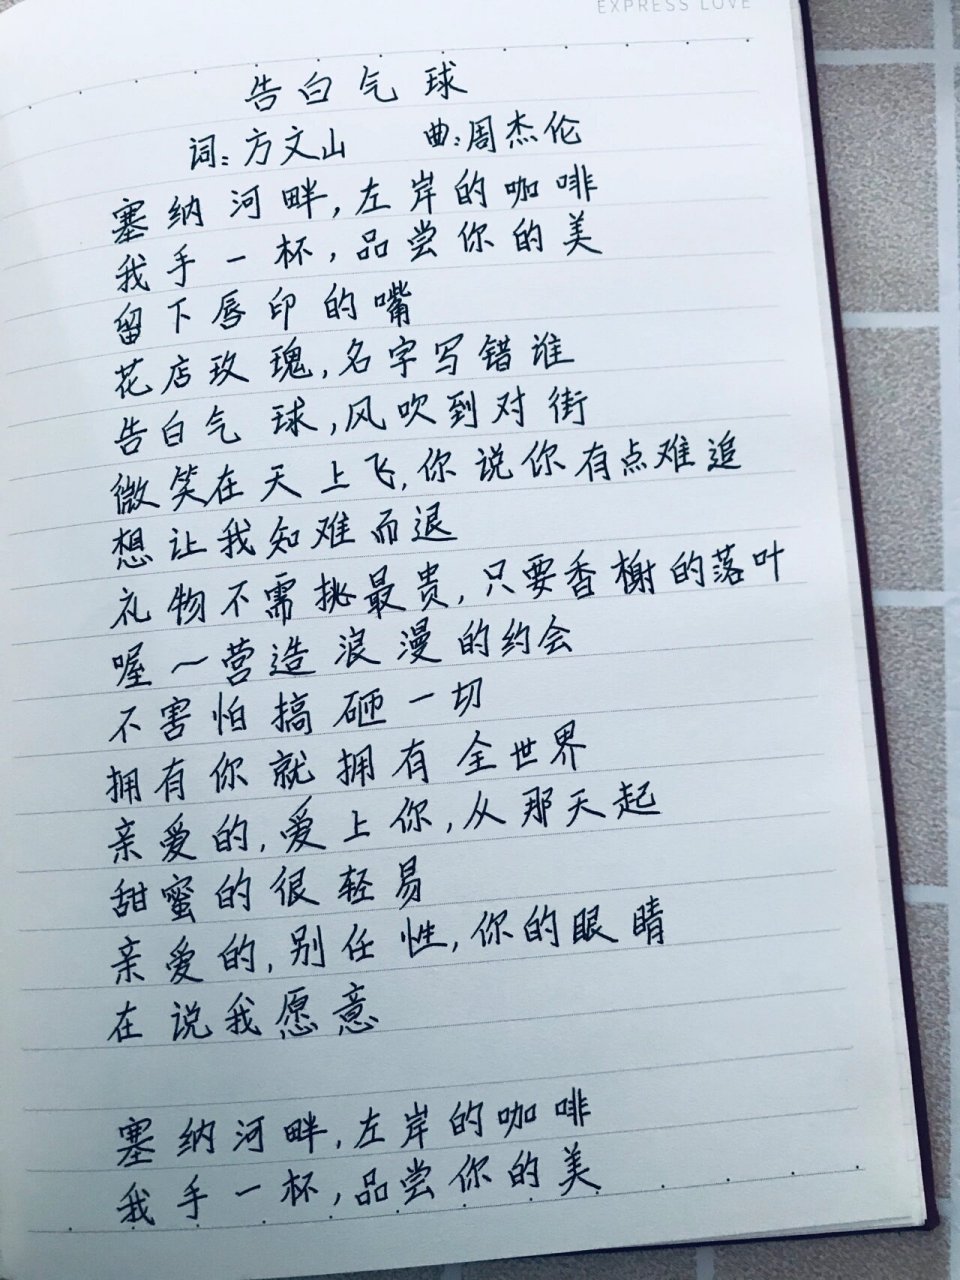 EXPRESS LOVE
告白气球
词:方文山 曲:周杰伦
塞纳河畔,左岸的咖啡
我手一杯,品尝你的美
留下唇印的嘴
花店玫瑰,名字写错谁
告白气球,风吹到对街
微笑在天上飞,你说你有点难追
想让我知难而退
礼物不需挑最贵,只要香榭的落叶
喔~营造浪漫的约会
不害怕搞砸一切
拥有你就拥有全世界
亲爱的,爱上你,从那天起
甜蜜的很轻易
亲爱的,别任性,你的眼睛
在说我愿意
塞纳河畔,左岸的咖啡
我手一杯,品尝你的美